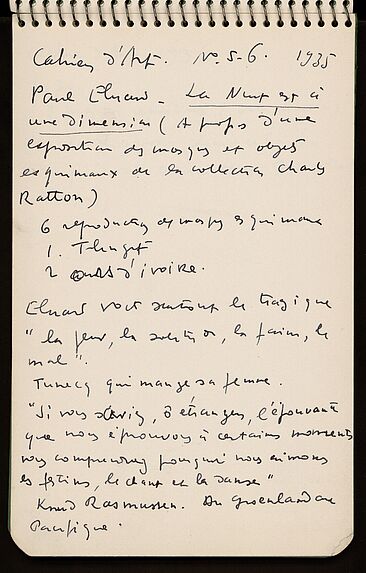 Cahiers d'Art. No. 5-6. 1935
Paul Eluard - La Nuit est à
une dimension (A propos d'une
exposition de masques et objets
esquimaux de la collection Charles
Ratton)
6 reproductions de masques esquimaux
1. Tlingit
2 d'ivoire.
Eluard voit surtout le tragique
"la peur, la solitude, la faim, le
mal".
qui mange sa femme.
"Si vous saviez, ô étranger, l'épouvante
que nous éprouvons à certains moments
vous comprendriez pourquoi nous aimons
les festins, le chant et la danse"
Knud Rasmussen. Du Groenland au
Pacifique.